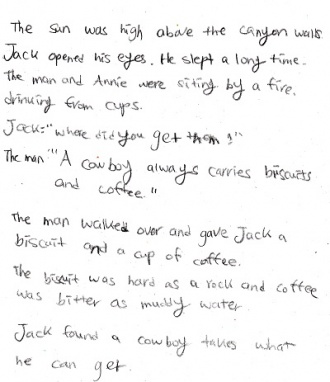 The sun was high above the canyon walls
Jack opened his eyes. He slept a long time.
The man and Annie were siting by a fire.
drinking from cups.
Jack:"where did you get them?"
The man"A cowboy always carries biscuits
and coffee."
The man walked over and gave Jack a
biscuit and a cup of coffee.
The biscuit was hard as a rock and coffee
was bitter as muddy water.
Jack found a cowboy takes what
he can get.